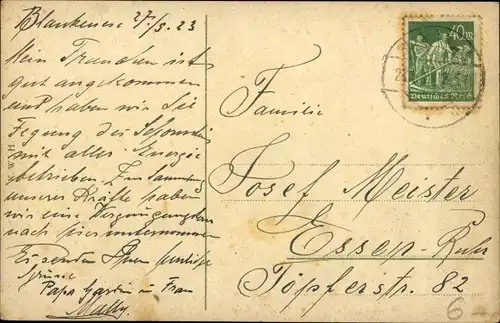 Blankenese 27/3. 23
Mein Frauchen ist
gut angekommen
und haben wir die
des
mit aller Energie
betrieben. Zur Sammlung
unserer Kräfte haben
wir eine
nach hier unternommen
Es senden Ihnen herzliche
Grüsse
Papa Gartin u Frau
Mally.
40 M
Deutsches Reich
Familie
Josef Meister
Essen-Ruhr
Töpferstr. 82
6-